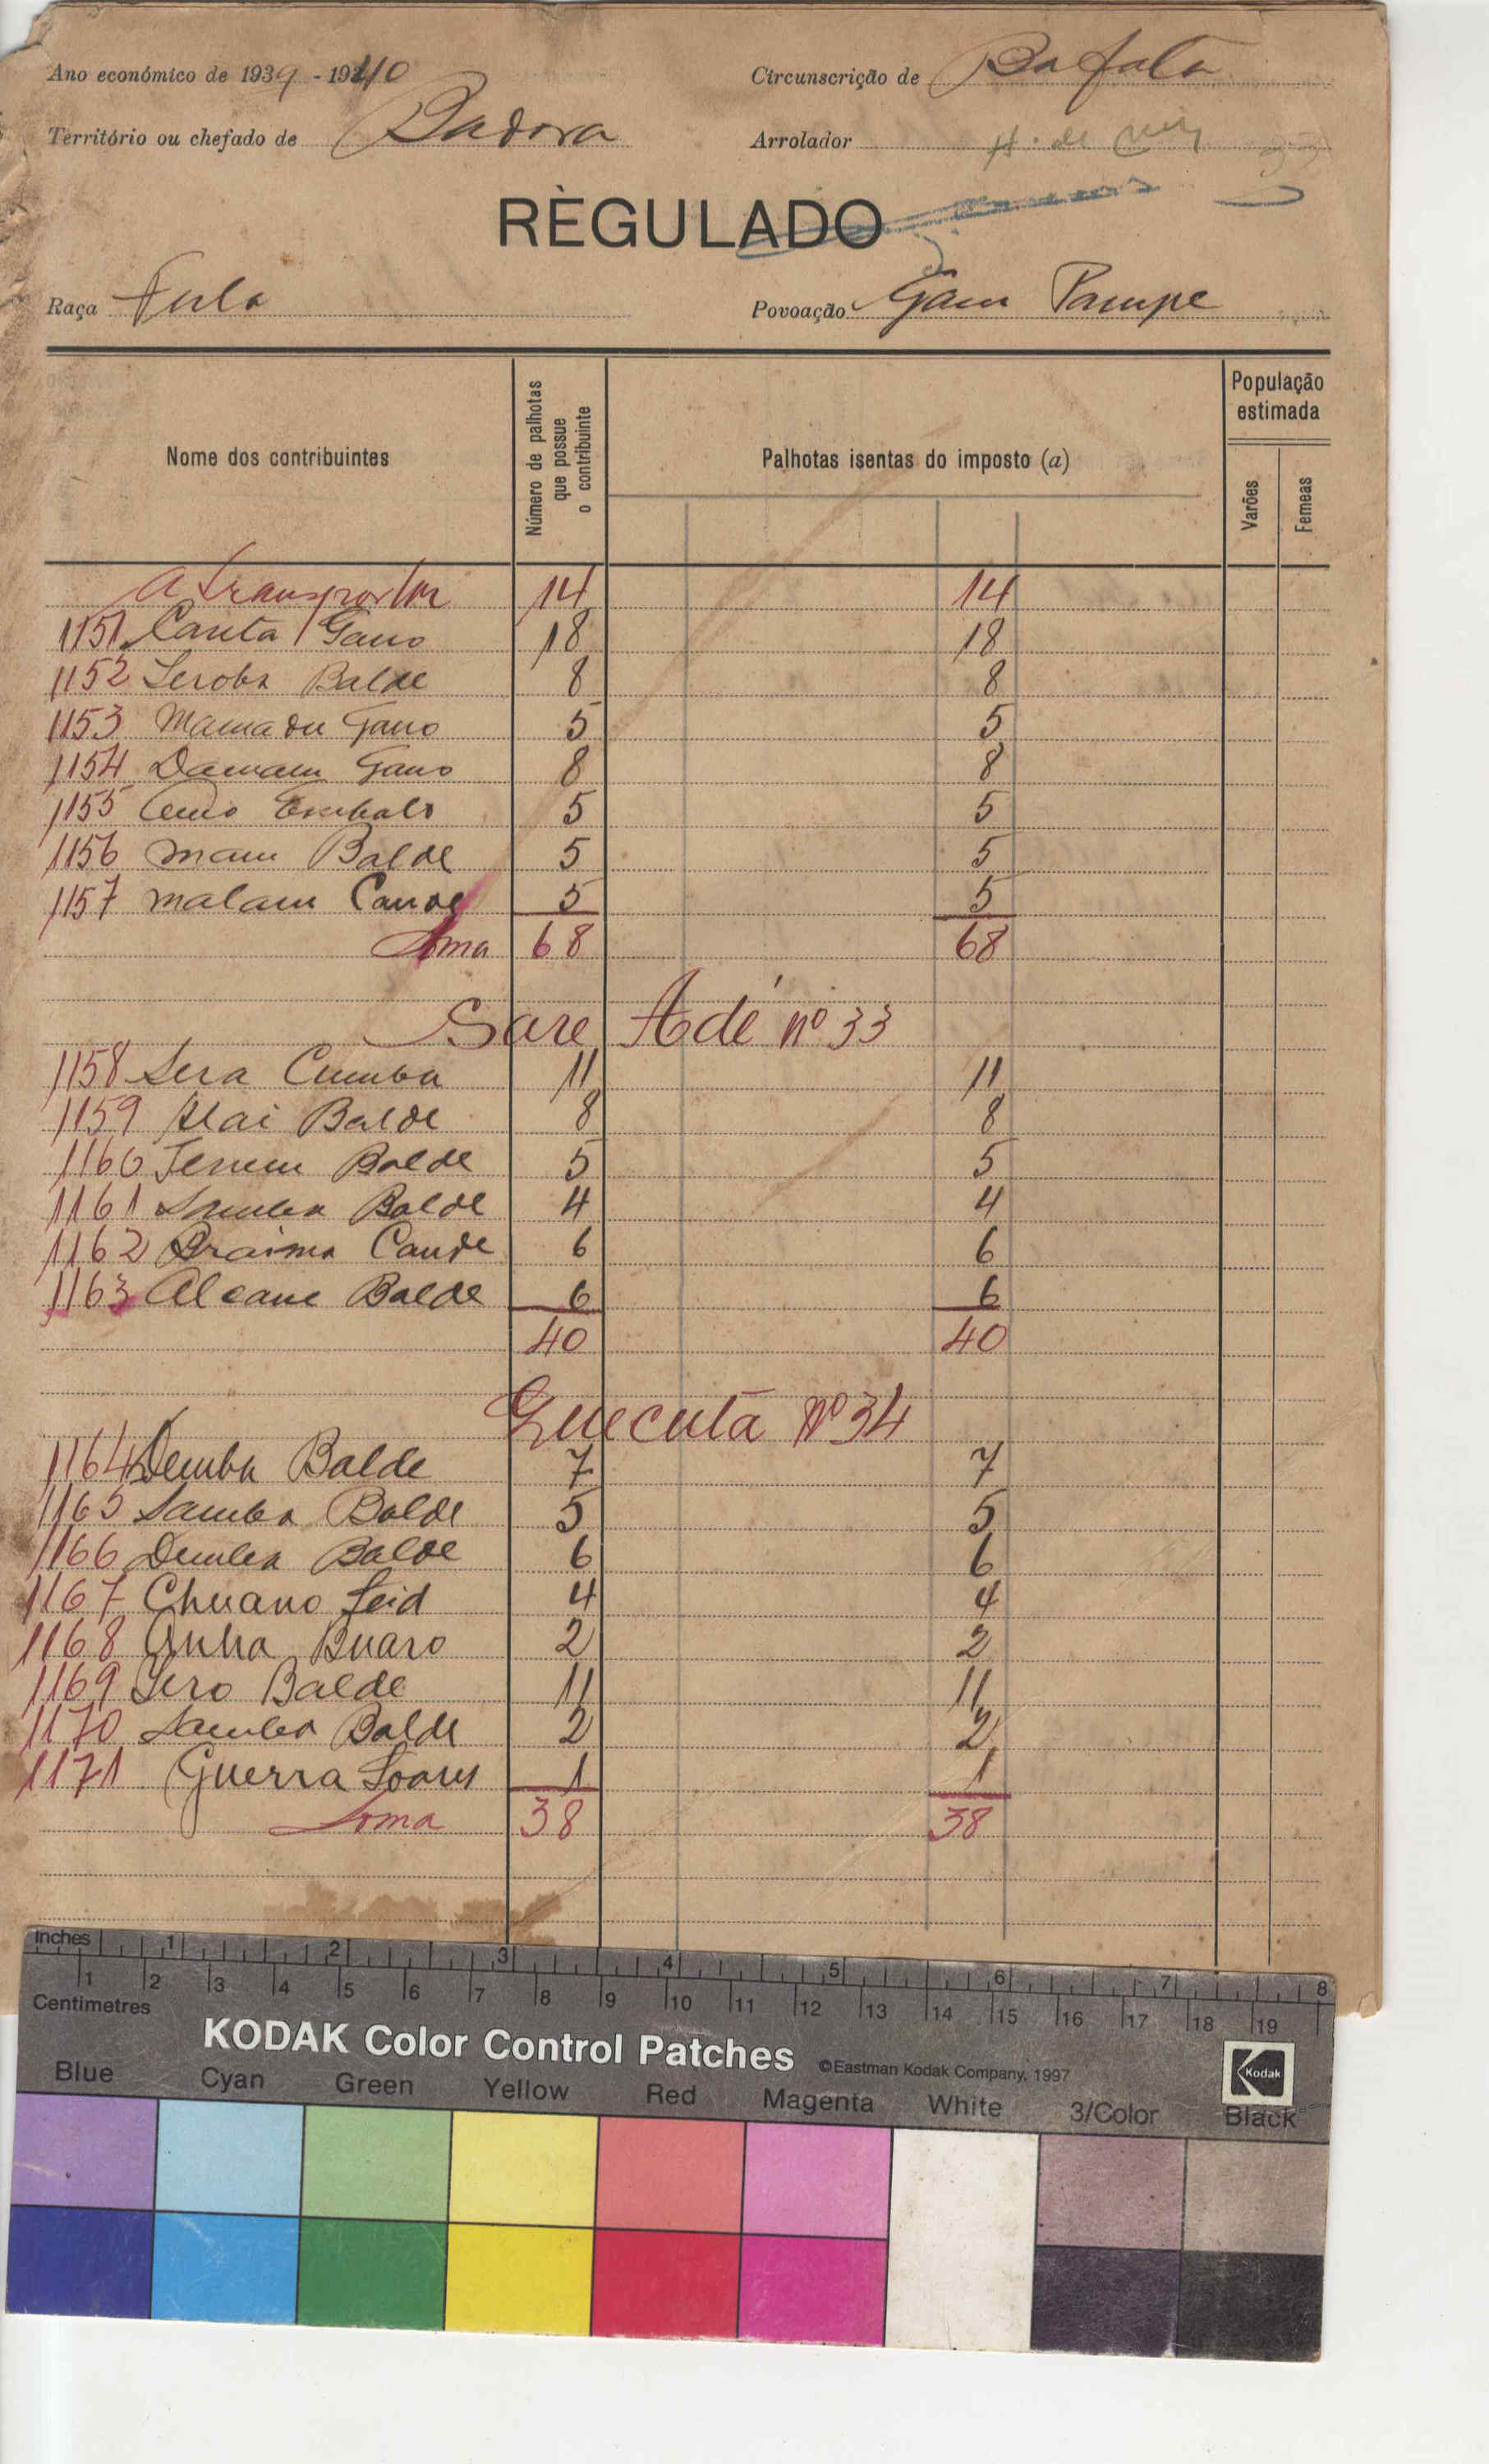 Ano económico de 1939 - 1940
Circunscrição de Bafata
Território ou chefado de Badora
Arrolador
RÈGULADO
Raça Fula
Povoação Gam Pampe
Nome dos contribuintes
Número de palhotas que possue o contribuinte
Palhotas isentas do imposto (a)
População estimada
Varões
Femeas
A transportar 14 14
1151 Canta Gano 18 18
1152 Seroba Balde 8 8
1153 Mamadu Gano 5 5
1154 Damam Gano 8 8
1155 Embalo 5 5
1156 Mam Balde 5 5
1157 Malam Cande 5 5
Soma 68 68
Sare Adé nº 33
1158 Sera Cumba 11 11
1159 Alai Balde 8 8
1160 Balde 5 5
1161 Samba Balde 4 4
1162 Braima Cande 6 6
1163 Balde 6 6
40 40
Guecuta Nº 34
1164 Demba Balde 7 7
1165 Samba Balde 5 5
1166 Demba Balde 6 6
1167 Chuano Seid 4 4
1168 Buaro 2 2
1169 Sero Balde 11 11
1170 Samba Balde 2 2
1171 Guerra Soares 1 1
Soma 38 38
Inches 1 2 3 4 5 6 7 8
1 2 3 4 5 6 7 8 9 10 11 12 13 14 15 16 17 18 19
Centimetres
KODAK Color Control Patches ©Eastman Kodak Company, 1997 Kodak
Blue Cyan Green Yellow Red Magenta White 3/Color Black